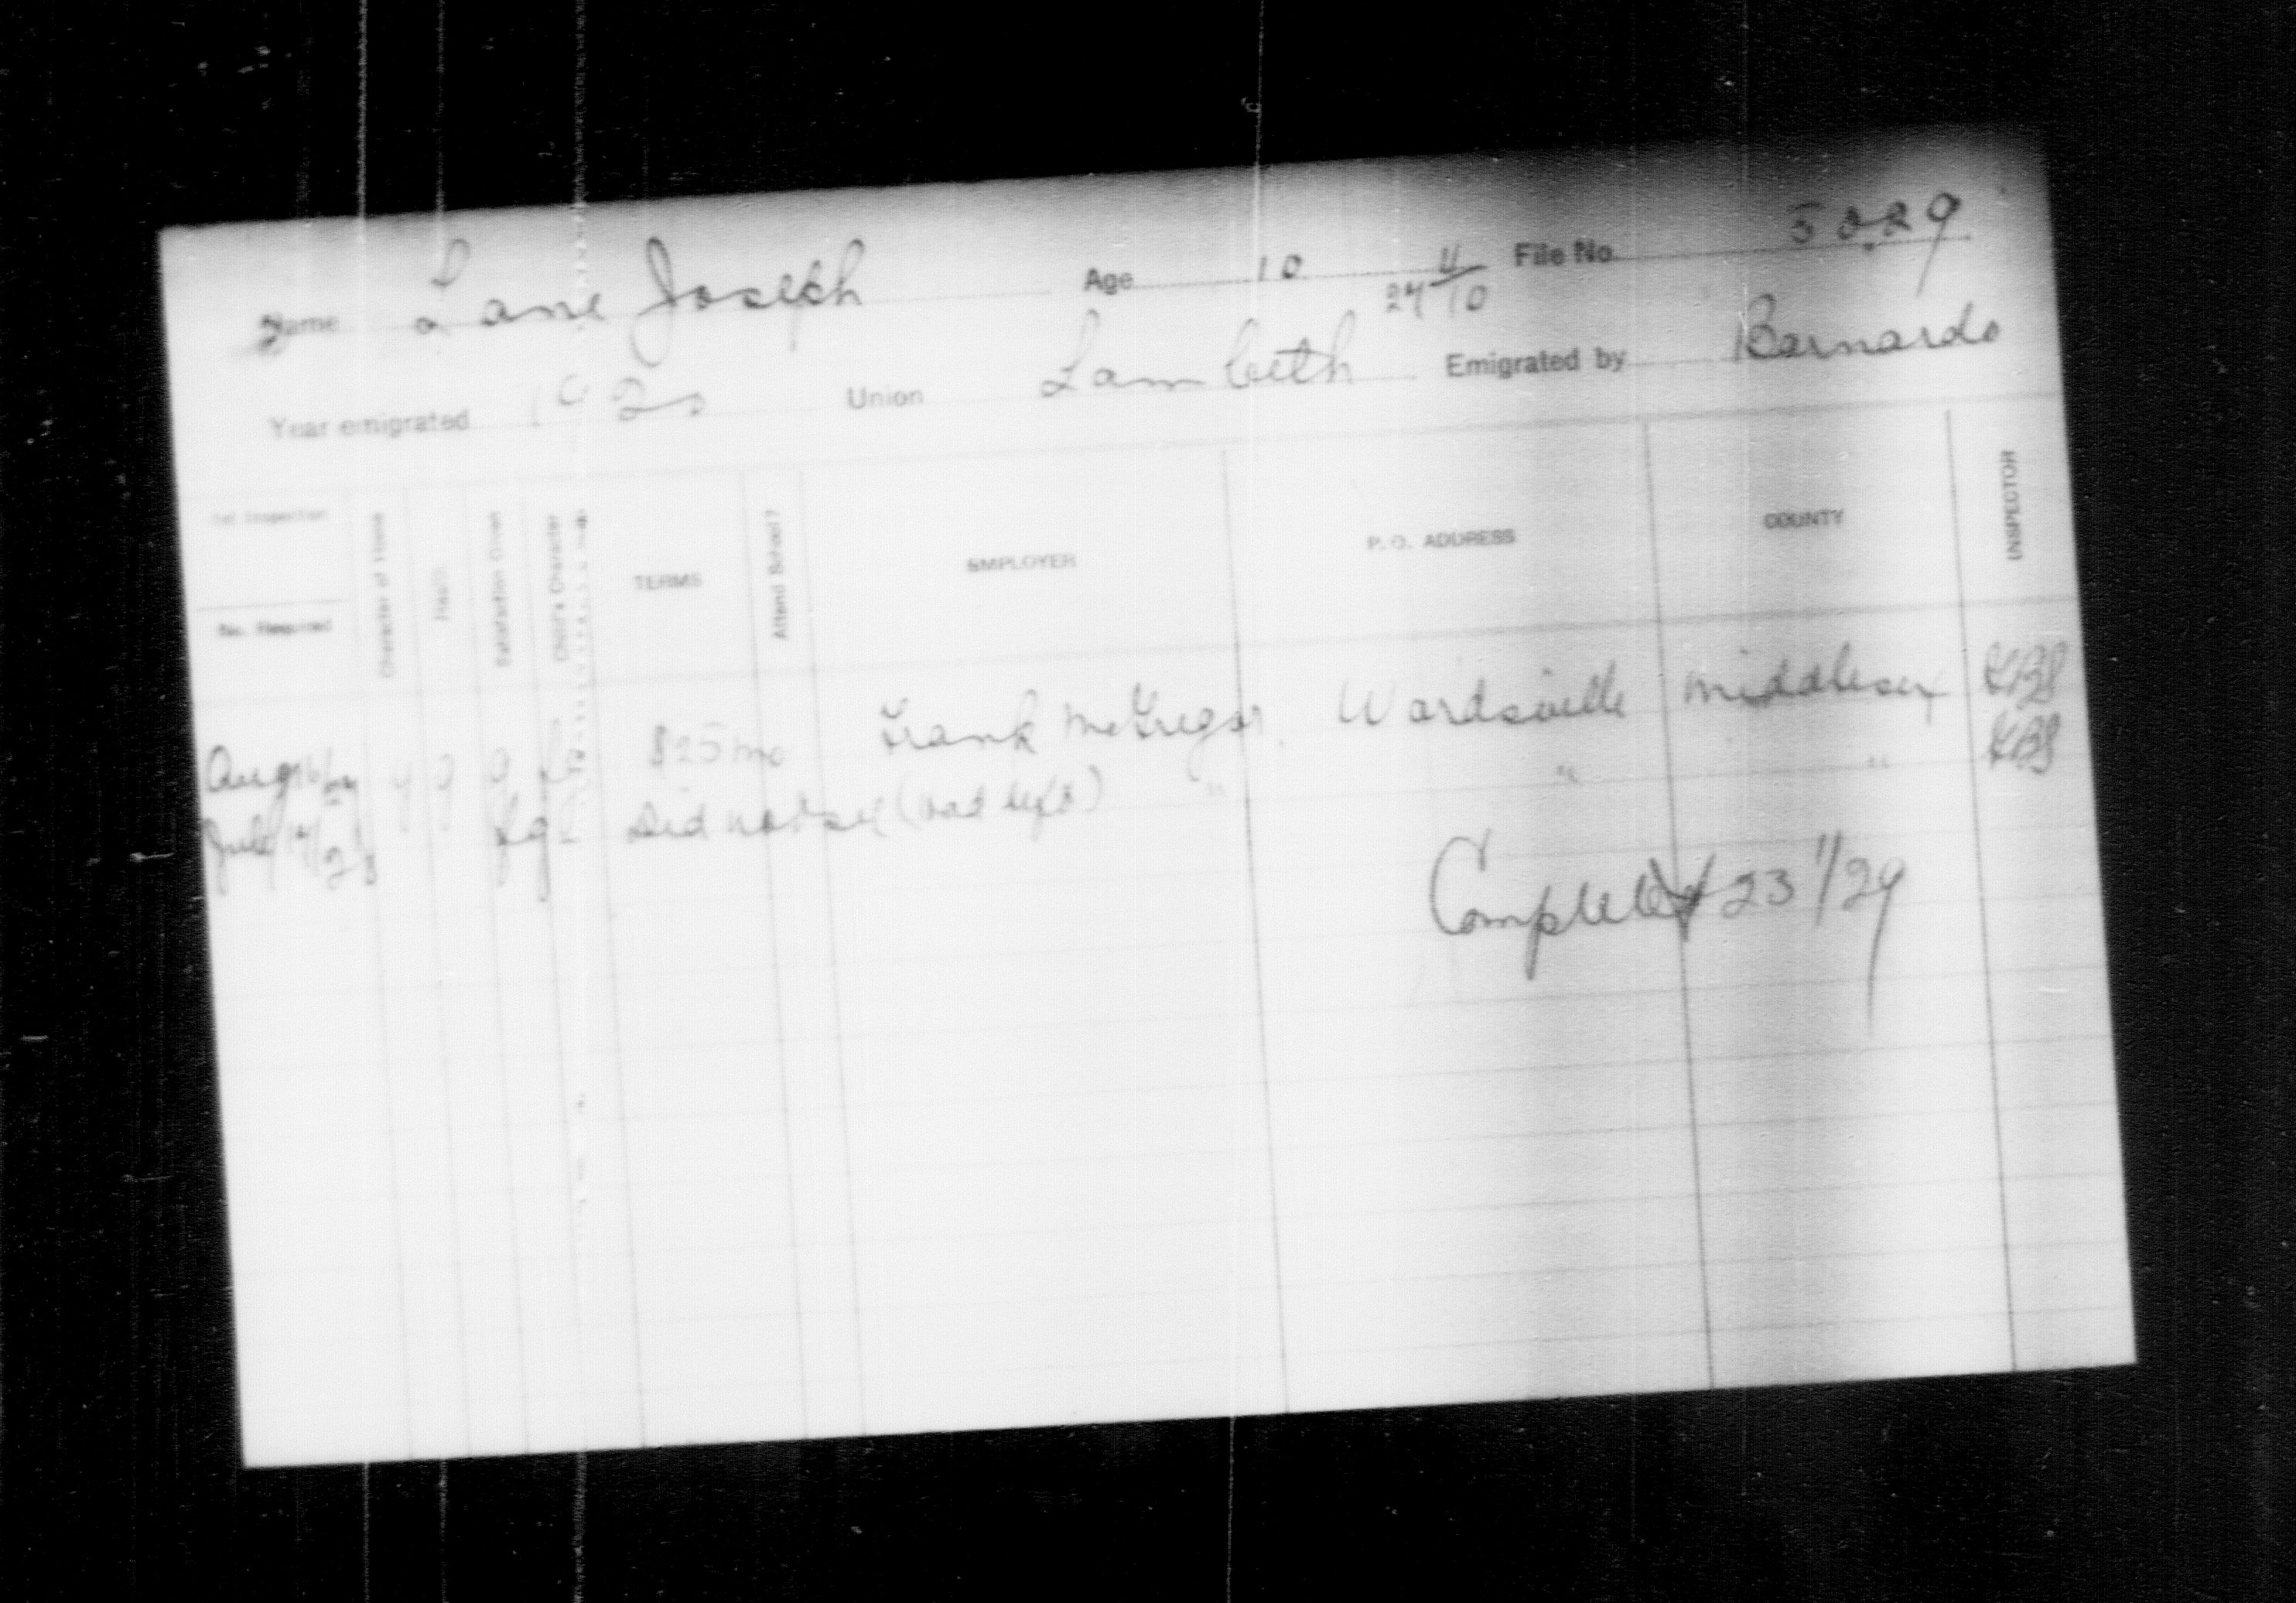 Name Lane Joseph Age 10 24 11/10 File No. 5229
Year emigrated 1920 Union Lambeth Emigrated by Barnardo
1st Inspection
No. Required
Character of Home
Health
Satisfaction Given
Child's Character
TERMS
Attend School?
EMPLOYER
P. O. ADDRESS
COUNTY
INSPECTOR
Aug 16/27 g g g $25 mo Frank McGregor Wardsville Middlesex
July 14/28 Did not see (had left) " " "
Completed 23 1/29